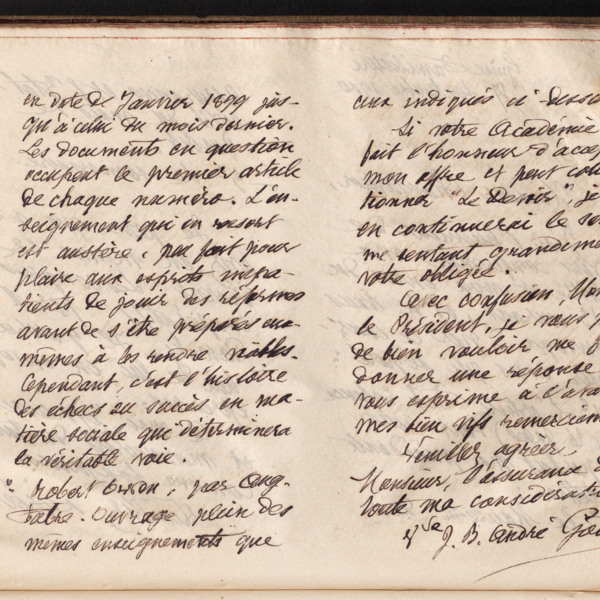 en date de Janvier 1899 jus-
qu'à celui du mois dernier.
Les documents en question
occupent le premier article
de chaque numéro. L'en-
seignement qui en ressort
est austère, peu fait pour
plaire aux esprits impa-
tients de jouir des réformes
avant de s'être préparés eux-
mêmes à les rendre viables.
Cependant, c'est l'histoire
des échecs ou succès en ma-
tière sociale que déterminera
la véritable voie.
" Robert Owen, par Aug.
Fabre. Ouvrage plein des
mêmes enseignements que
ceux indiqués ci-dessu
Si votre Académie
fait l'honneur d'accep
mon offre et peut coll
tionner "Le Devoir", je
en continuerai le se
me sentant grandeme
votre obligée.
Avec confusion, Mon
le Président, je vous
de bien vouloir me f
donner une réponse
vous exprime à l'ava
mes bien vifs remerciem
Veuillez agréer,
Monsieur, l'assurance
toute ma considérati
Vve J. B. André God